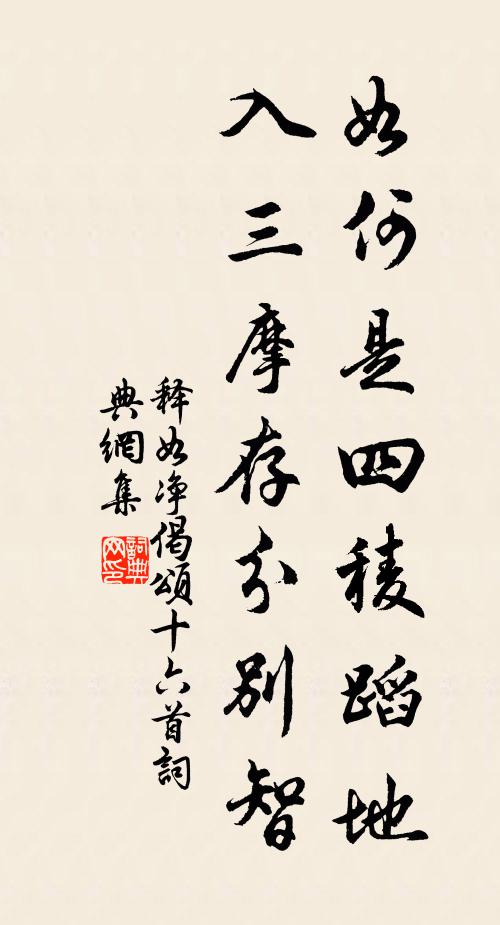 如何是四稜蹈地
入三摩存分別智
释如净偈頌十六首詞
典網集
詞典网印